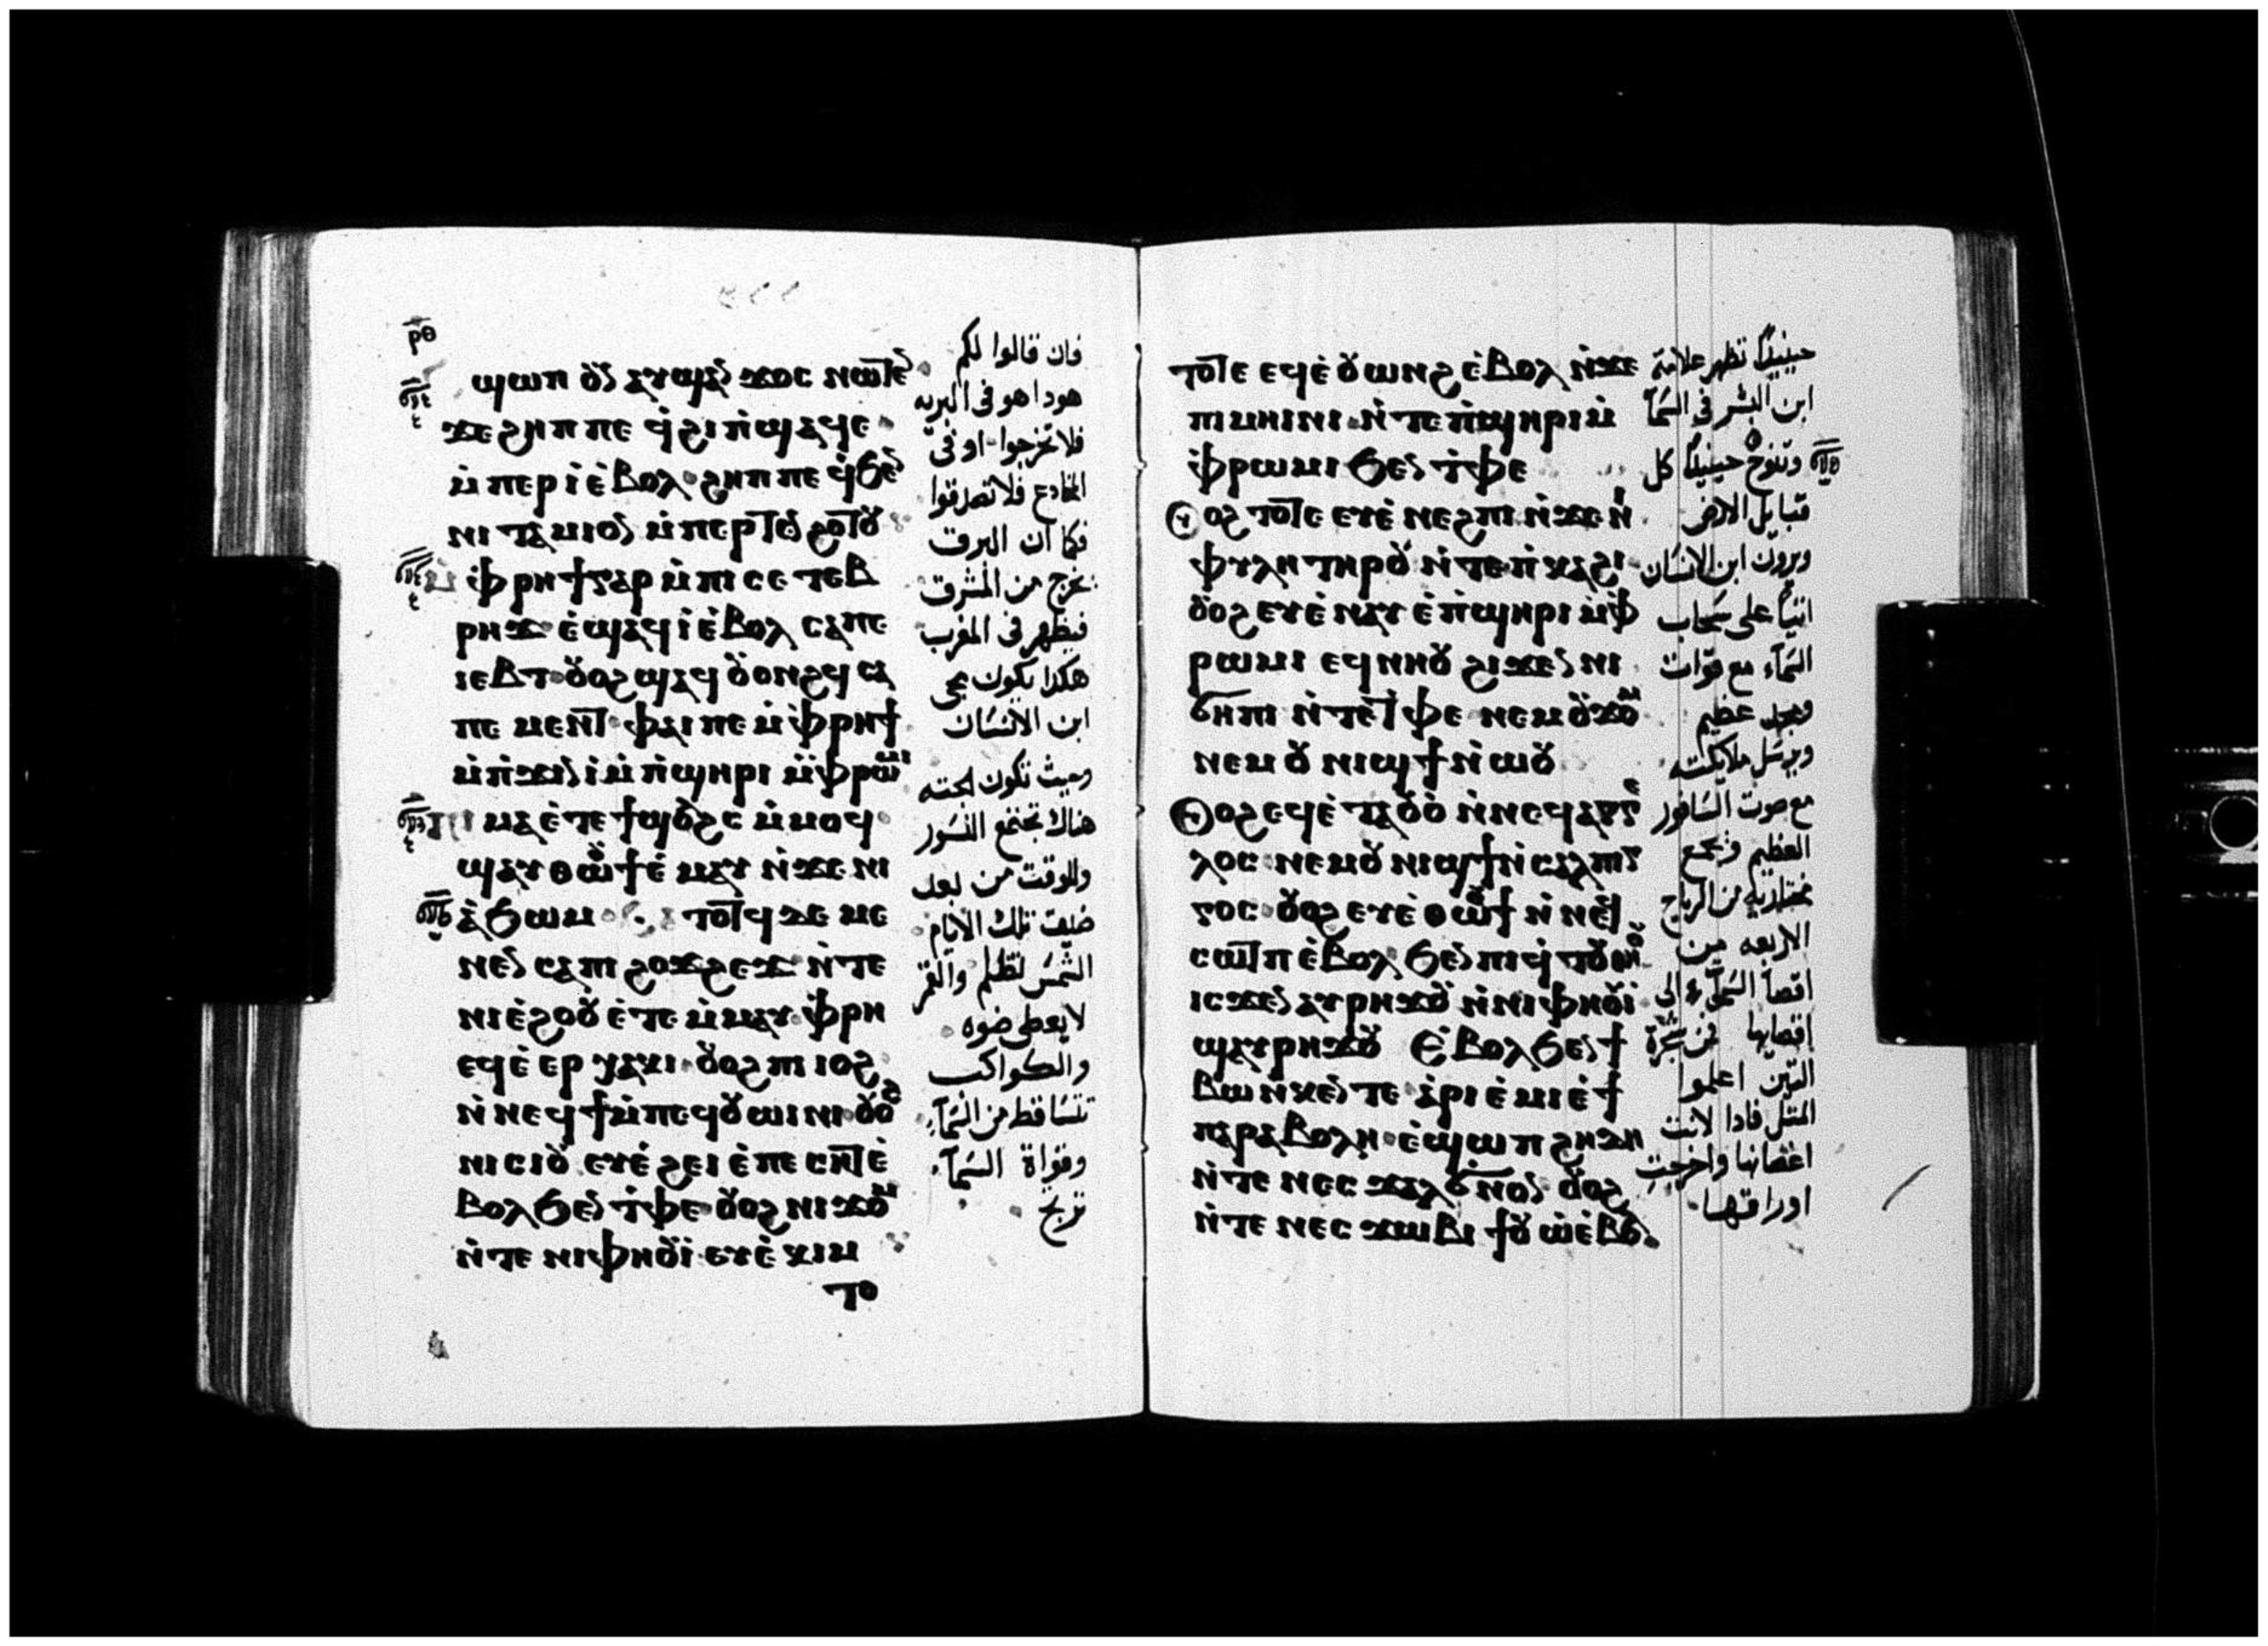 ⲣ̅ⲑ̅
ϣⲱⲡ ⲟⲩⲛ ⲁⲩϣⲁⲛϫⲟⲥ ⲛⲱⲧⲉⲛ
ϫⲉ ϩⲏⲡⲡⲉ ϥ̇ϩⲓ ⲡ̇ϣⲁϥⲉ
ⲙ̇ⲡⲉⲣⲓ̇ ⲉ̇ⲃⲟⲗ ϩⲏⲡⲡⲉ ϥ̇ϧⲉⲛ
ⲛⲓ ⲧⲁⲙⲓⲟⲛ ⲙ̇ⲡⲉⲣⲧⲉⲛϩⲟⲧⲟⲩ
ⲙ̇ ⲫ̇ⲣⲏϯ ⲅⲁⲣ ⲙ̇ⲡⲓⲥⲉⲧⲉⲃ
ⲣⲏϫ ⲉ̇ϣⲁϥⲓ̇ ⲉ̇ⲃⲟⲗ ⲥⲁⲡⲉ
ⲓⲉⲃⲧ ⲟⲩⲟϩ ϣⲁϥⲟⲩⲟⲛϩϥ ⲥⲁ
ⲡⲉⲙⲉⲛⲧ ⲫⲁⲓ ⲡⲉ ⲙ̇ⲫ̇ⲣⲏϯ
ⲙ̇ⲡ̇ϫⲓⲛⲓ̇ ⲙ̇ⲡ̇ϣⲏⲣⲓ ⲙ̇ⲫ̇ⲣⲱⲙⲓ
ⲡⲓ ⲙⲁ ⲉ̇ⲧⲉ ϯϣⲟⲗϩⲥ ⲙ̇ⲙⲟϥ
ϣⲁⲩⲑⲱⲟⲩϯ ⲉ̇ⲙⲁⲩ ⲛ̇ϫⲉ ⲛⲓ
ⲁ̇ϧⲱⲙ ⲧⲟⲧϥ ϫⲉ ⲙⲉ
ⲛⲉⲛⲥⲁ ⲡⲓ ϩⲟϫϩⲉϫ ⲛ̇ⲧⲉ
ⲛⲓⲉ̇ϩⲟⲟⲩ ⲉ̇ⲧⲉ ⲙ̇ⲙⲁⲩ ⲫ̇ⲣⲏ
ⲉϥⲉ̇ ⲉⲣ ⲭⲁⲕⲓ ⲟⲩⲟϩ ⲡⲓ ⲓⲟϩ
ⲛ̇ⲛⲉϥϯ ⲙ̇ⲡⲉϥⲟⲩⲱⲓⲛⲓ ⲟⲩⲟϩ
ⲛⲓ ⲥⲓⲟⲩ ⲉⲩⲉ̇ϩⲉⲓ ⲉ̇ⲡⲉⲥⲏⲧ ⲉ̇
ⲃⲟⲗϧⲉⲛ ⲧ̇ⲫⲉ ⲟⲩⲟϩ ⲛⲓϫⲟⲙ
ⲛ̇ⲧⲉ ⲛⲓⲫⲏⲟⲩⲓ̇ ⲉⲩⲉ̇ⲕⲓⲙ
ⲧⲟ
فان قالوا لكم
هوداهو فى البريه
فلا تخرجوا او فى
المخادع فلا تصدقوا
فكما ان البرق
يخرج من المشرق
فيظهر فى المغرب
هكدا يكون مجى
ابن الانسَان
وحيث تكون الجثه
هناك تجتمع النسَور
وللوقت من بعد
ضيق تلك الايام
الشمسَ تظلم والقمر
لا يعطى ضوه
والكواكب
تتسَاقط من السَمآ
وقواة السَمآ
ترتج
ⲧⲟⲧⲉ ⲉϥⲉ̇ⲟⲩⲱⲛϩ ⲉ̇ⲃⲟⲗ ⲛ̇ϫⲉ
ⲡⲓⲙⲏⲓⲛⲓ ⲛ̇ⲧⲉ ⲡ̇ϣⲏⲣⲓ ⲙ̇
ⲫ̇ⲣⲱⲙⲓ ϧⲉⲛ ⲧ̇ⲫⲉ
ⲟⲩⲟϩ ⲧⲟⲧⲉ ⲉⲩⲉ̇ⲛⲉϩⲡⲓ ⲛ̇ϫⲉ ⲛⲓ
ⲫⲩⲗⲏ ⲧⲏⲣⲟⲩ ⲛ̇ⲧⲉ ⲡ̇ⲕⲁϩⲓ
ⲟⲩⲟϩ ⲉⲩⲉ̇ⲛⲁⲩ ⲉ̇ⲡ̇ϣⲏⲣⲓ ⲙ̇ⲫ̇
ⲣⲱⲙⲓ ⲉϥⲛⲏⲟⲩ ϩⲓϫⲉⲛ ⲛⲓ
ϭⲏⲡⲓ ⲛ̇ⲧⲉ ⲧ̇ⲫⲉ ⲛⲉⲙ ⲟⲩϫⲟⲙ
ⲛⲉⲙ ⲟⲩⲛⲓϣϯ ⲛ̇ⲱⲟⲩ
ⲟⲩⲟϩ ⲉϥⲉ̇ⲧⲁⲟⲩⲟ̇ ⲛ̇ⲛⲉϥⲁⲅⲅⲉ
ⲗⲟⲥ ⲛⲉⲙ ⲟⲩⲛⲓϣϯ ⲛ̇ⲥⲁⲗⲡⲓⲅ
ⲅⲟⲥ ⲟⲩⲟϩ ⲉⲩⲉ̇ⲑⲱⲟⲩϯ ⲛ̇ⲛⲉϥ
ⲥⲱⲧⲡ ⲉ̇ⲃⲟⲗϧⲉⲛ ⲡⲓϥ̇ⲧⲟⲩ ⲑⲏⲟⲩ
ⲓⲥϫⲉⲛ ⲁⲩⲣⲏϫⲟⲩ ⲛ̇ⲛⲓⲫⲏⲟⲩⲓ̇
ϣⲁⲩⲣⲏϫⲟⲩ ⲉ̇ⲃⲟⲗϧⲉⲛ ϯ
ⲃⲱ ⲛ̇ⲕⲉⲛⲧⲉ ⲁ̇ⲣⲓⲉ̇ⲙⲓ ⲉ̇ϯ
ⲡⲁⲣⲁⲃⲟⲗⲏ ⲉ̇ϣⲱⲡ ϩⲏⲇⲏ
ⲛ̇ⲧⲉ ⲛⲉⲥϫⲁⲗ ϭⲛⲟⲛ ⲟⲩⲟϩ
ⲛ̇ⲧⲉ ⲛⲉⲥϫⲱⲃⲓ ϯⲟⲩⲱ̇ ⲉ̇ⲃⲟⲗ
حينيدًا تظهر علامة
ابن البشر فى السَمآ
وتنوح حينيدًا كل
قبايل الارض
ويرون ابن الانسَان
اتيًا على سَحاب
السَمآء مع قوات
ومجد عظيم
ويرسَل ملايكته
مع صوت السَافور
العظيم وتجمع
مختاريه من الرياح
الاربعه من
اقصآ السَمآء الى
اقصايها فمن شجرة
التين اعلموا
المثل فادا لانت
اغصانها واخرجت
اوراقها